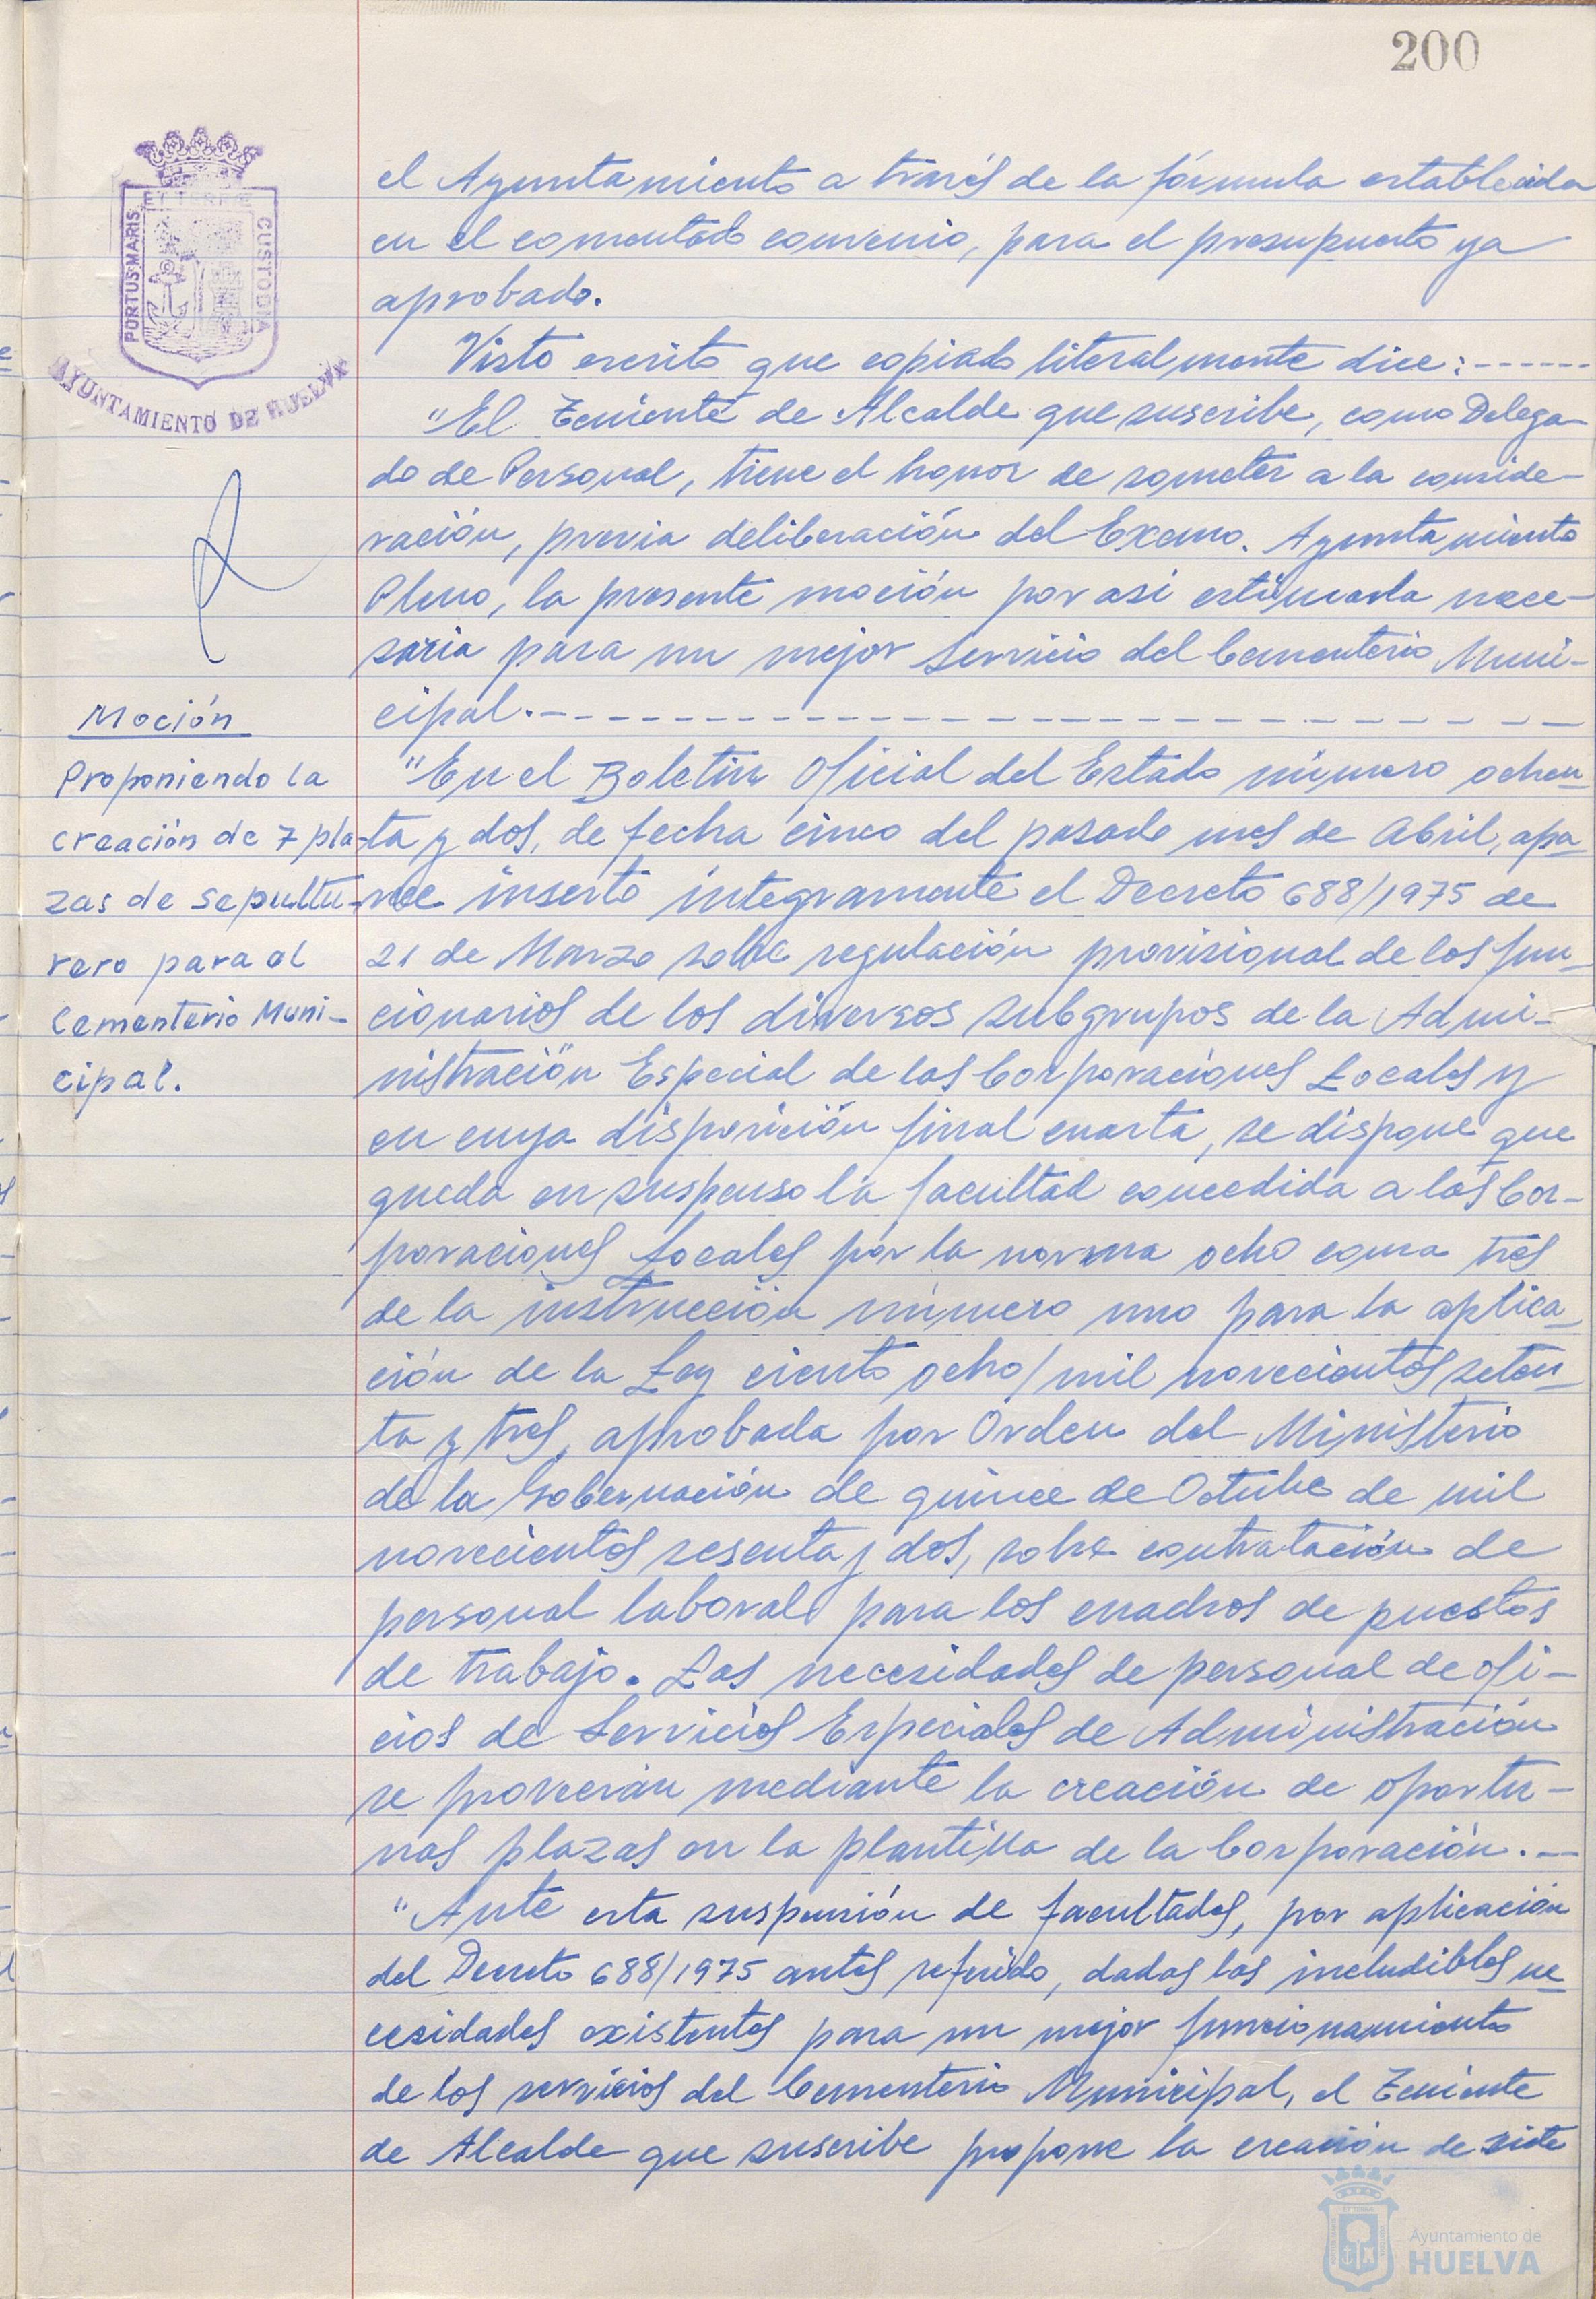 200
ET TERRE
PORTUS MARIS
CUSTODIA
AYUNTAMIENTO DE HUELVA
el Ayuntamiento a través de la fórmula establecida
en el comentado convenio, para el presupuesto ya
aprobado.
Visto escrito que copiado literalmente dice:------
"El Teniente de Alcalde que suscribe, como Delega-
do de Personal, tiene el honor de someter a la conside-
ración, previa deliberación del Excmo. Ayuntamiento
Pleno, la presente moción por asi estimarla nece-
saria para un mejor Servicio del Cementerio Muni-
cipal.- - - - - - - - - - - - - - - - - - - -
Moción
Proponiendo la
creación de 7 pla-
zas de sepultu-
rero para el
Cementerio Muni-
cipal.
"En el Boletín Oficial del Estado número ochen-
ta y dos, de fecha cinco del pasado mes de Abril, apa-
rece inserto integramente el Decreto 688/1975 de
21 de Marzo sobre regulación provisional de los fun-
cionarios de los diversos subgrupos de la Admi-
nistración Especial de las Corporaciones Locales y
en cuya disposición final cuarta, se dispone que
queda en suspenso la facultad concedida a las Cor-
poraciones Locales por la norma ocho coma tres
de la instrucción número uno para la aplica-
ción de la Ley ciento ocho/mil novecientos seten-
ta y tres, aprobada por Orden del Ministerio
de la Gobernación de quince de Octubre de mil
novecientos sesenta y dos, sobre contratación de
personal laboral para los cuadros de puestos
de trabajo. Las necesidades de personal de ofi-
cios de Servicios Especiales de Administración
se proveerán mediante la creación de oportu-
nas plazas en la plantilla de la Corporación.-
"Ante esta suspensión de facultades, por aplicación
del Decreto 688/1975 antes referido, dadas las ineludibles ne-
cesidades existentes para un mejor funcionamiento
de los servicios del Cementerio Municipal, el Teniente
de Alcalde que suscribe propone la creación de siete
Ayuntamiento de
HUELVA